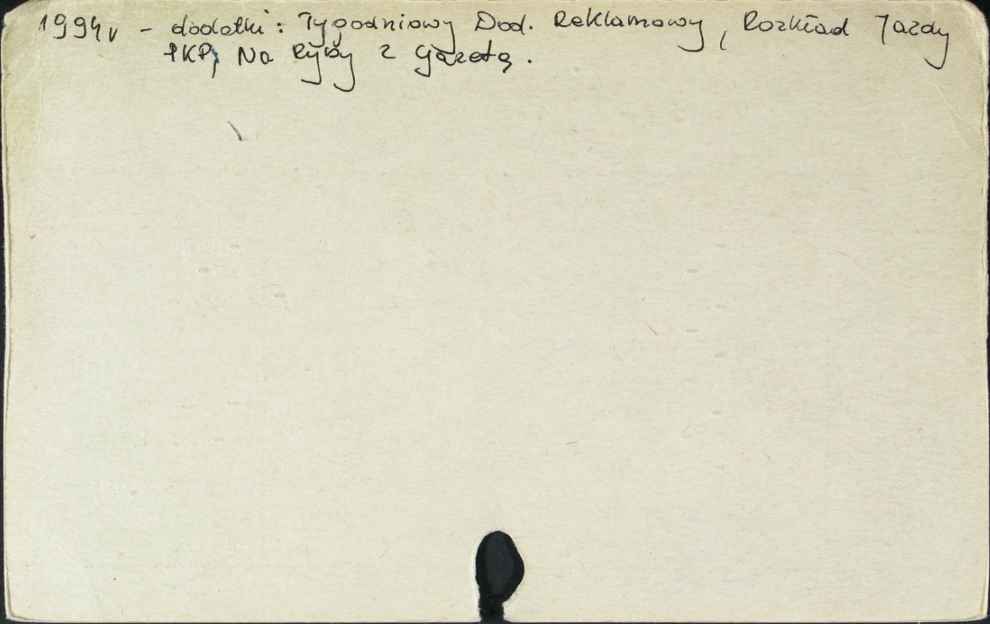 1994r - dodatki: Tygodniowy Dod. Reklamowy, Rozkład Jazdy
PKP, Na Ryby z Gazetą.